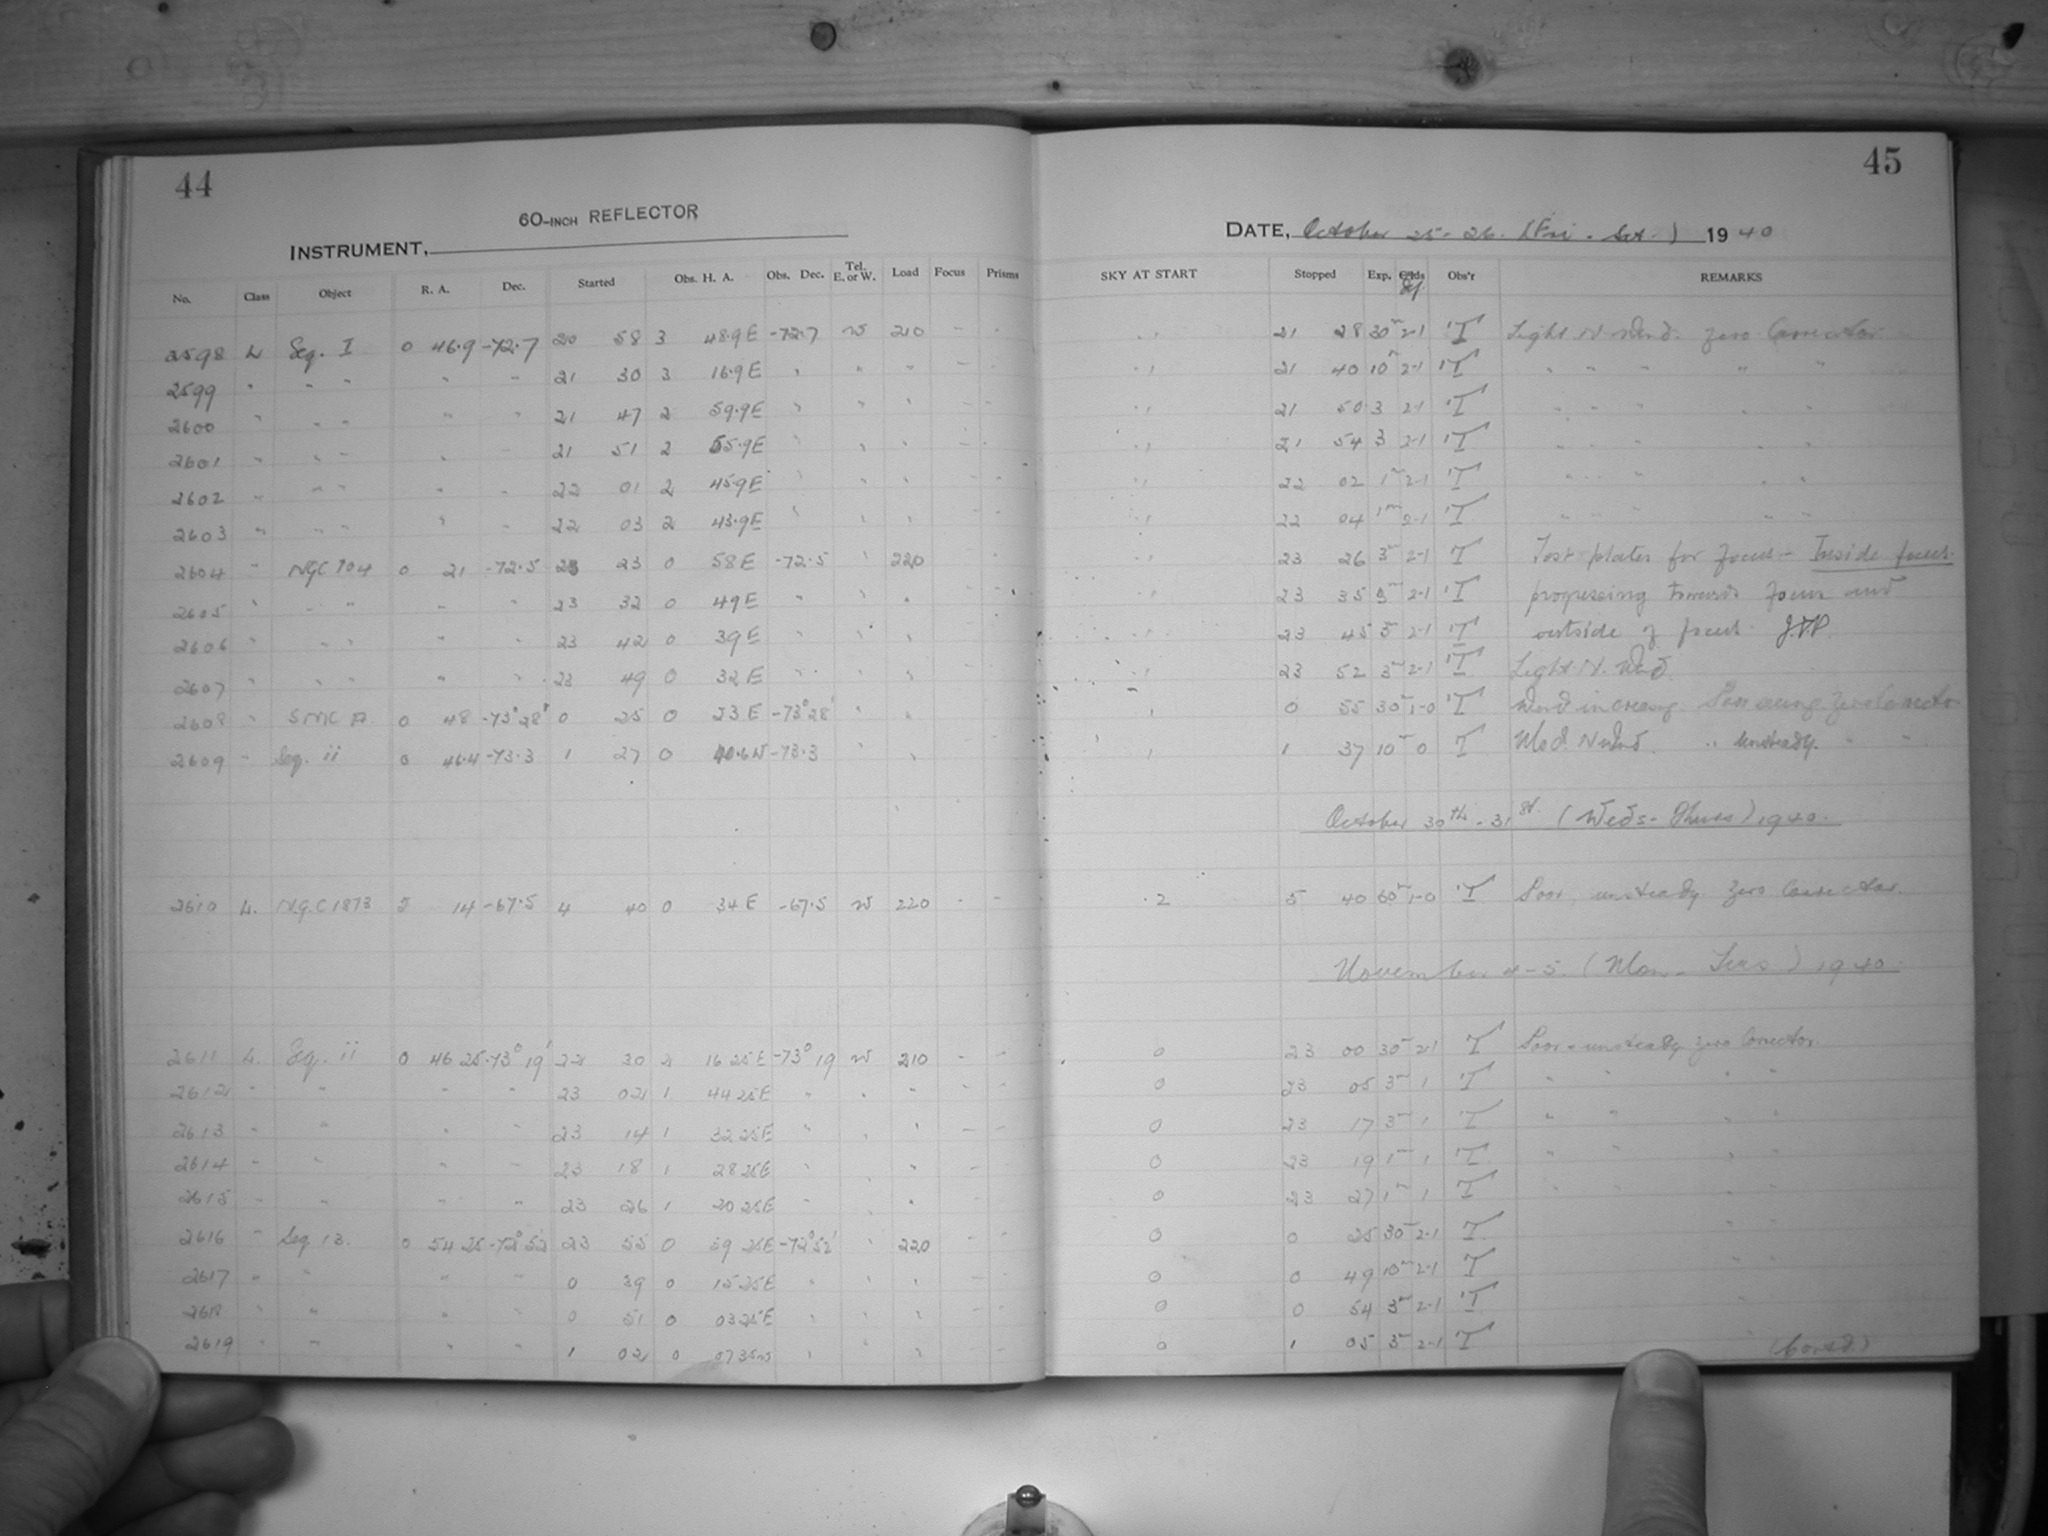 44
60-INCH REFLECTOR
INSTRUMENT,
No. Class Object R. A. Dec. Started Obs. H. A. Obs. Dec. Tel. E. or W. Load Focus Prisms
2598 L Seq. I 0 46.9 -72.7 20 58 3 48.9E -72.7 W 210 - -
2599 " " " " " 21 30 3 16.9E " " "
2600 " " " " " 21 47 2 59.9E " " " - -
2601 " " " " " 21 51 2 55.9E " " " - -
2602 " " " " " 22 01 2 45.9E " " " - -
2603 " " " " " 22 03 2 43.9E " " " - -
2604 " NGC 104 0 21 -72.5 23 23 0 58E -72.5 " 220
2605 " " " " " 23 32 0 49E " " "
2606 " " " " " 23 42 0 39E " " "
2607 " " " " " 23 49 0 32E " " "
2608 " SMC A 0 48 -73°28' 0 25 0 23E -73°28' " "
2609 " Seq. ii 0 46.4 -73.3 1 27 0 40.6W -73.3 " "
2610 L. N.G.C 1873 5 14 -67.5 4 40 0 34E -67.5 W 220 - -
2611 L. Seq. ii 0 46 25 -73°19' 22 30 2 16 25E -73°19 W 210 - -
2612 " " " " 23 02 1 44 25E " " " - -
2613 " " " " 23 14 1 32 25E " " " - -
2614 " " " " 23 18 1 28 25E " " " -
2615 " " " " 23 26 1 20 25E " " "
2616 " Seq. 13. 0 54 25 -72°52 23 55 0 59 25E -72°52' " 220
2617 " " " " 0 39 0 15 25E " " " - -
2618 " " " " 0 51 0 03 25E " " " - -
2619 " " " " 1 02 0 07 35W " " " - -
45
DATE, October 25-26. (Fri. - Sat.) 1940
SKY AT START Stopped Exp. Obs'r REMARKS
21 28 30m 2-1 'T Light N Wind. Zero Corrector
21 40 10m 2-1 'T " " " " "
21 50 3 2-1 'T " " " " "
21 54 3 2-1 'T " " " " "
22 02 1m 2-1 'T " " " " "
22 04 1m 2-1 'T " " " " "
23 26 3m 2-1 'T Test plates for focus - Inside focus
23 35 3m 2-1 'T progressing towards focus and
23 45 3m 2-1 'T outside of focus. J.S.P.
23 52 3m 2-1 'T Light N. Wind
0 55 30m 1-0 'T Wind increasing. Poor seeing Zero Corrector
1 37 10m 0 'T Mod. N wind. " Unsteady. " "
October 30th - 31st. (Weds - Thurs) 1940.
.2 5 40 60m 1-0 'T Poor, unsteady. Zero Corrector.
November 4-5. (Mon - Tues) 1940.
0 23 00 30m 2-1 'T Poor - unsteady Zero Corrector.
0 23 05 3m 1 'T " " " "
0 23 17 3m 1 'T " " " "
0 23 19 1m 1 'T " " " "
0 23 27 1m 1 'T " " " "
0 0 25 30m 2-1 'T
0 0 49 10m 2-1 'T
0 0 54 3m 2-1 'T
0 1 05 3m 2-1 'T
(Contd.)